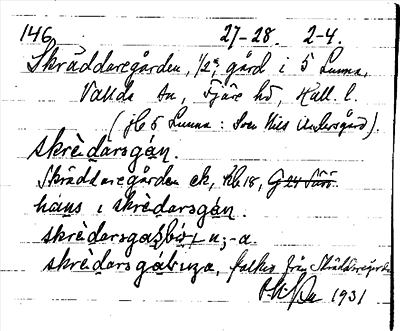 146. 27-28. 2-4.
Skräddaregården, 1/2 gård i 5 Lunna,
Vallda sn, Fjäre hd, Hall. l.
(jfr 5 Lunna: Sven Nils Andersgård).
skrèdarsgan.
Skräddaregården ek, kb 18,
hans i skrèdarsgán.
skrèdarsga
skrèdarsgabuza, folket från Skräddaregården
1931